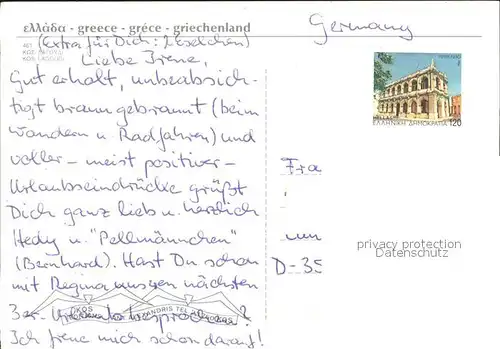 ελλάδα - greece - gréce - griechenland
Germany
(extra für Dich: 2 Eselchen)
Liebe Irene,
Gut erholt, unbeabsich-
tigt braun gebrannt (beim
Wandern u. Radfahren) und
voller - meist positiver -
Urlaubseindrücke grüßt
Dich ganz lieb u. herzlich
Hedy u. "Pellmännchen"
(Bernhard). Hast Du schon
mit Regina unsren nächsten
3er- besprochen?
Ich freue mich schon darauf!
ΕΛΛΗΝΙΚΗ ΔΗΜΟΚΡΑΤΙΑ 120
Fra
D-35
privacy protection
Datenschutz
KOS